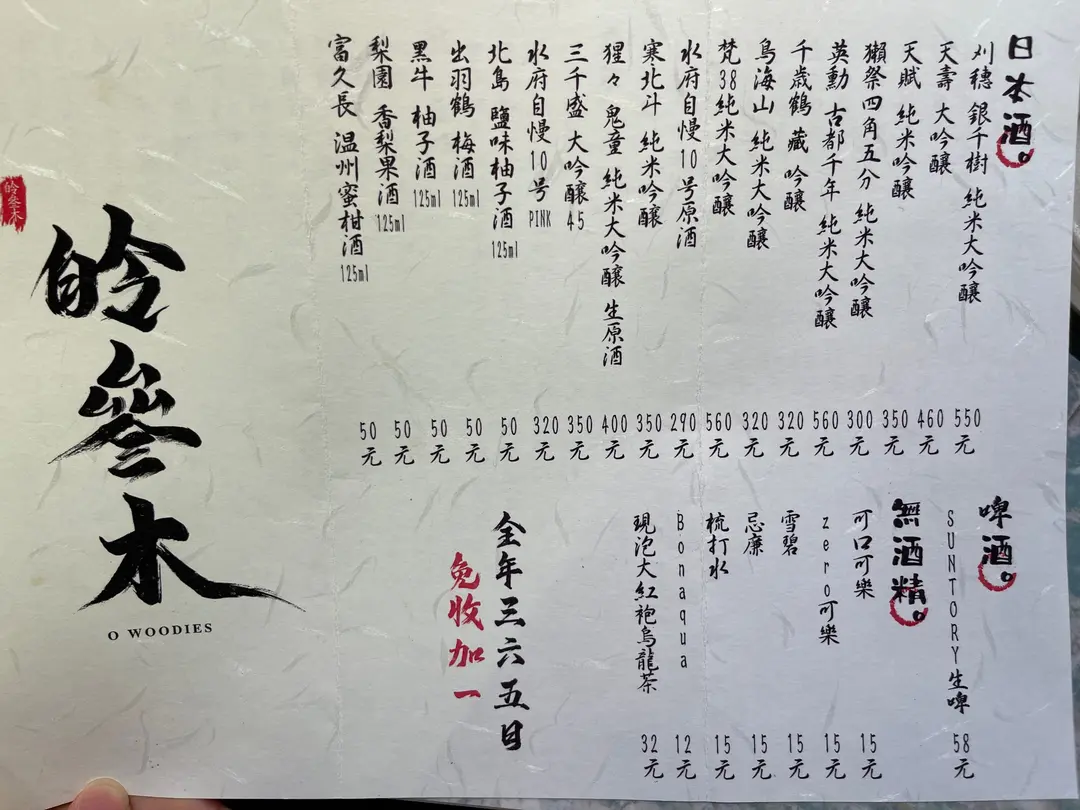 日本酒。
刈穗 銀千樹 純米大吟釀 550元
天壽 大吟釀 460元
天賦 純米吟釀 350元
獺祭四角五分 純米大吟釀 300元
英勳 古都千年 純米大吟釀 560元
千歲鶴 藏 吟釀 320元
鳥海山 純米大吟釀 320元
梵38純米大吟釀 560元
水府自慢10号原酒 290元
寒北斗 純米吟釀 350元
猩々 鬼童 純米大吟釀 生原酒 400元
三千盛 大吟釀45 350元
水府自慢10号 PINK 320元
北島 鹽味柚子酒 125ml 50元
出羽鶴 梅酒 125ml 50元
黑牛 柚子酒 125ml 50元
梨園 香梨果酒 125ml 50元
富久長 温州蜜柑酒 125ml 50元
啤酒。
SUNTORY生啤 58元
無酒精。
可口可樂 15元
zero可樂 15元
雪碧 15元
忌廉 15元
梳打水 15元
Bonaqua 12元
現泡大紅袍烏龍茶 32元
全年三六五日
免收加一
皊參木
O WOODIES
皊參木